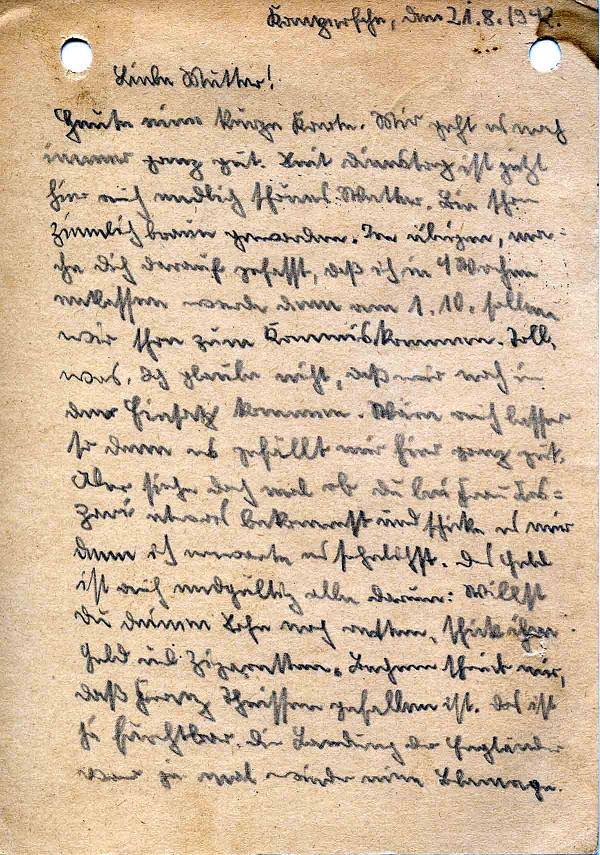 Kamperfehn, den 21.8.1942.
Liebe Mutter!
Heute eine kurze Karte. Mir geht es noch
immer ganz gut. Seit Dienstag ist jetzt
hier auch endlich schönes Wetter. Bin schon
ziemlich braun geworden. Im übrigen, ma-
che dich darauf gefasst, daß ich in 4 Wochen
entlassen werde denn am 1.10. sollen
wir schon zum Kommiskommen. Toll,
was. Ich glaube nicht, daß wir noch in
den Einsatz kommen. Wäre auch besser
so denn es gefällt mir hier ganz gut.
Aber siehe doch mal ob du bei Frau
etwas bekommst und schicke es mir
denn ich erwarte es sehnlichst. Das Geld
ist auch endgültig alle darum: Willst
du deinen Sohn noch retten, schick ihm
Geld und Zigaretten. Jochem schrieb mir,
daß Franz Theissen gefallen ist. Das ist
ja furchtbar. Die Landung der Engländer
war ja mal wieder eine Blamage.